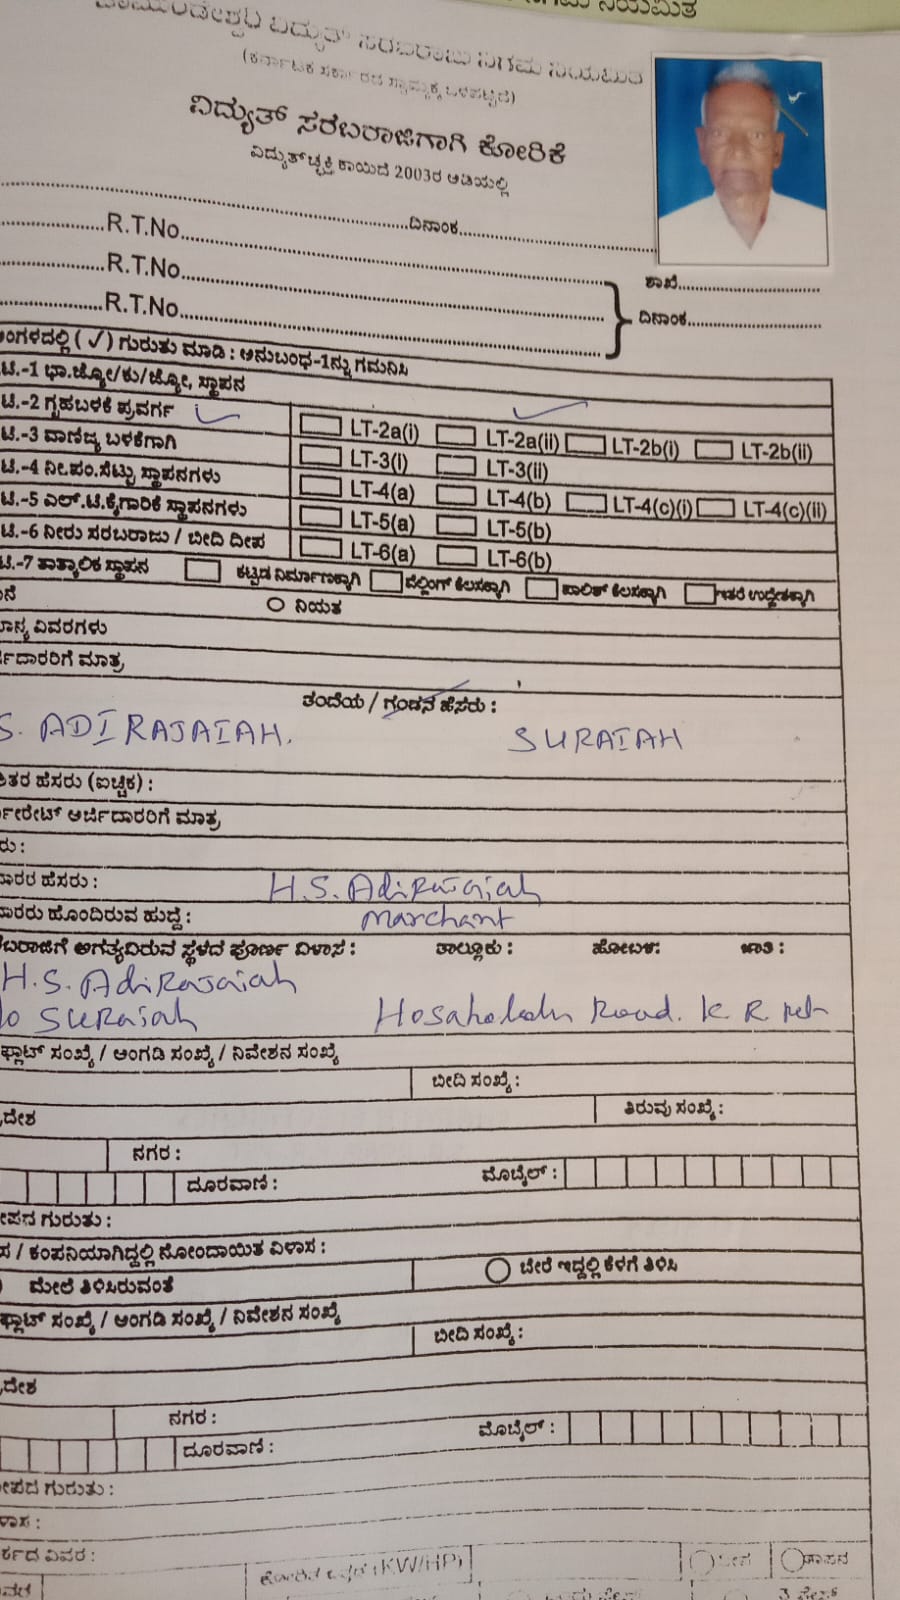 ನಿಗಮ ನಿಯಮಿತ
ಚಾಮುಂಡೇಶ್ವರಿ ವಿದ್ಯುತ್ ಸರಬರಾಜು ನಿಗಮ ನಿಯಮಿತ
(ಕರ್ನಾಟಕ ಸರ್ಕಾರದ ಸ್ವಾಮ್ಯಕ್ಕೆ ಒಳಪಟ್ಟಿದೆ)
ವಿದ್ಯುತ್ ಸರಬರಾಜಿಗಾಗಿ ಕೋರಿಕೆ
ವಿದ್ಯುತ್‌ಚ್ಛಕ್ತಿ ಕಾಯಿದೆ 2003ರ ಅಡಿಯಲ್ಲಿ
ದಿನಾಂಕ
R.T.No
R.T.No
ಶಾಖೆ
R.T.No
ದಿನಾಂಕ
ಅಂಗಳದಲ್ಲಿ (✓) ಗುರುತು ಮಾಡಿ : ಅನುಬಂಧ-1ನ್ನು ಗಮನಿಸಿ
ಟಿ.-1 ಭಾ.ಜ್ಯೋ/ಕು/ಜ್ಯೋ, ಸ್ಥಾಪನ
ಟಿ.-2 ಗೃಹಬಳಕೆ ಪ್ರವರ್ಗ LT-2a(i) LT-2a(ii) LT-2b(i) LT-2b(ii)
ಟಿ.-3 ವಾಣಿಜ್ಯ ಬಳಕೆಗಾಗಿ LT-3(i) LT-3(ii)
ಟಿ.-4 ನೀ.ಪಂ.ಸೆಟ್ಟು ಸ್ಥಾಪನಗಳು LT-4(a) LT-4(b) LT-4(c)(i) LT-4(c)(ii)
ಟಿ.-5 ಎಲ್.ಟಿ.ಕೈಗಾರಿಕೆ ಸ್ಥಾಪನಗಳು LT-5(a) LT-5(b)
ಟಿ.-6 ನೀರು ಸರಬರಾಜು / ಬೀದಿ ದೀಪ LT-6(a) LT-6(b)
ಟಿ.-7 ತಾತ್ಕಾಲಿಕ ಸ್ಥಾಪನ ಕಟ್ಟಡ ನಿರ್ಮಾಣಕ್ಕಾಗಿ ವೆಲ್ಡಿಂಗ್ ಕೆಲಸಕ್ಕಾಗಿ ಪಾಲಿಶ್ ಕೆಲಸಕ್ಕಾಗಿ ಇತರೆ ಉದ್ದೇಶಕ್ಕಾಗಿ
ನಿಯತ
ವಿವರಗಳು
ಮಾತ್ರ
ತಂದೆಯ / ಗಂಡನ ಹೆಸರು :
S. ADIRAJAIAH. SURAIAH
ಹೆಸರು (ಐಚ್ಛಿಕ) :
ಅರ್ಜಿದಾರರಿಗೆ ಮಾತ್ರ
ರು :
ದಾರರ ಹೆಸರು : H.S. Adirajaiah
ದಾರರು ಹೊಂದಿರುವ ಹುದ್ದೆ : Marchant
ಬರಾಜಿಗೆ ಅಗತ್ಯವಿರುವ ಸ್ಥಳದ ಪೂರ್ಣ ವಿಳಾಸ : ತಾಲ್ಲೂಕು : ಹೋಬಳಿ: ಜಾತಿ :
H.S. Adirajaiah
o Suraiah Road. K. R
ಫ್ಲಾಟ್ ಸಂಖ್ಯೆ / ಅಂಗಡಿ ಸಂಖ್ಯೆ / ನಿವೇಶನ ಸಂಖ್ಯೆ
ಬೀದಿ ಸಂಖ್ಯೆ :
ದೇಶ ತಿರುವು ಸಂಖ್ಯೆ :
ನಗರ :
ದೂರವಾಣಿ : ಮೊಬೈಲ್ :
ಗುರುತು :
ಸ / ಕಂಪನಿಯಾಗಿದ್ದಲ್ಲಿ ನೋಂದಾಯಿತ ವಿಳಾಸ :
ಮೇಲೆ ತಿಳಿಸಿರುವಂತೆ ಬೇರೆ ಇದ್ದಲ್ಲಿ ಕೆಳಗೆ ತಿಳಿಸಿ
ಫ್ಲಾಟ್ ಸಂಖ್ಯೆ / ಅಂಗಡಿ ಸಂಖ್ಯೆ / ನಿವೇಶನ ಸಂಖ್ಯೆ
ಬೀದಿ ಸಂಖ್ಯೆ :
ದೇಶ
ನಗರ :
ದೂರವಾಣಿ : ಮೊಬೈಲ್ :
ಗುರುತು :
ಳಾಸ :
ವಿವರ :
(KW/HP)